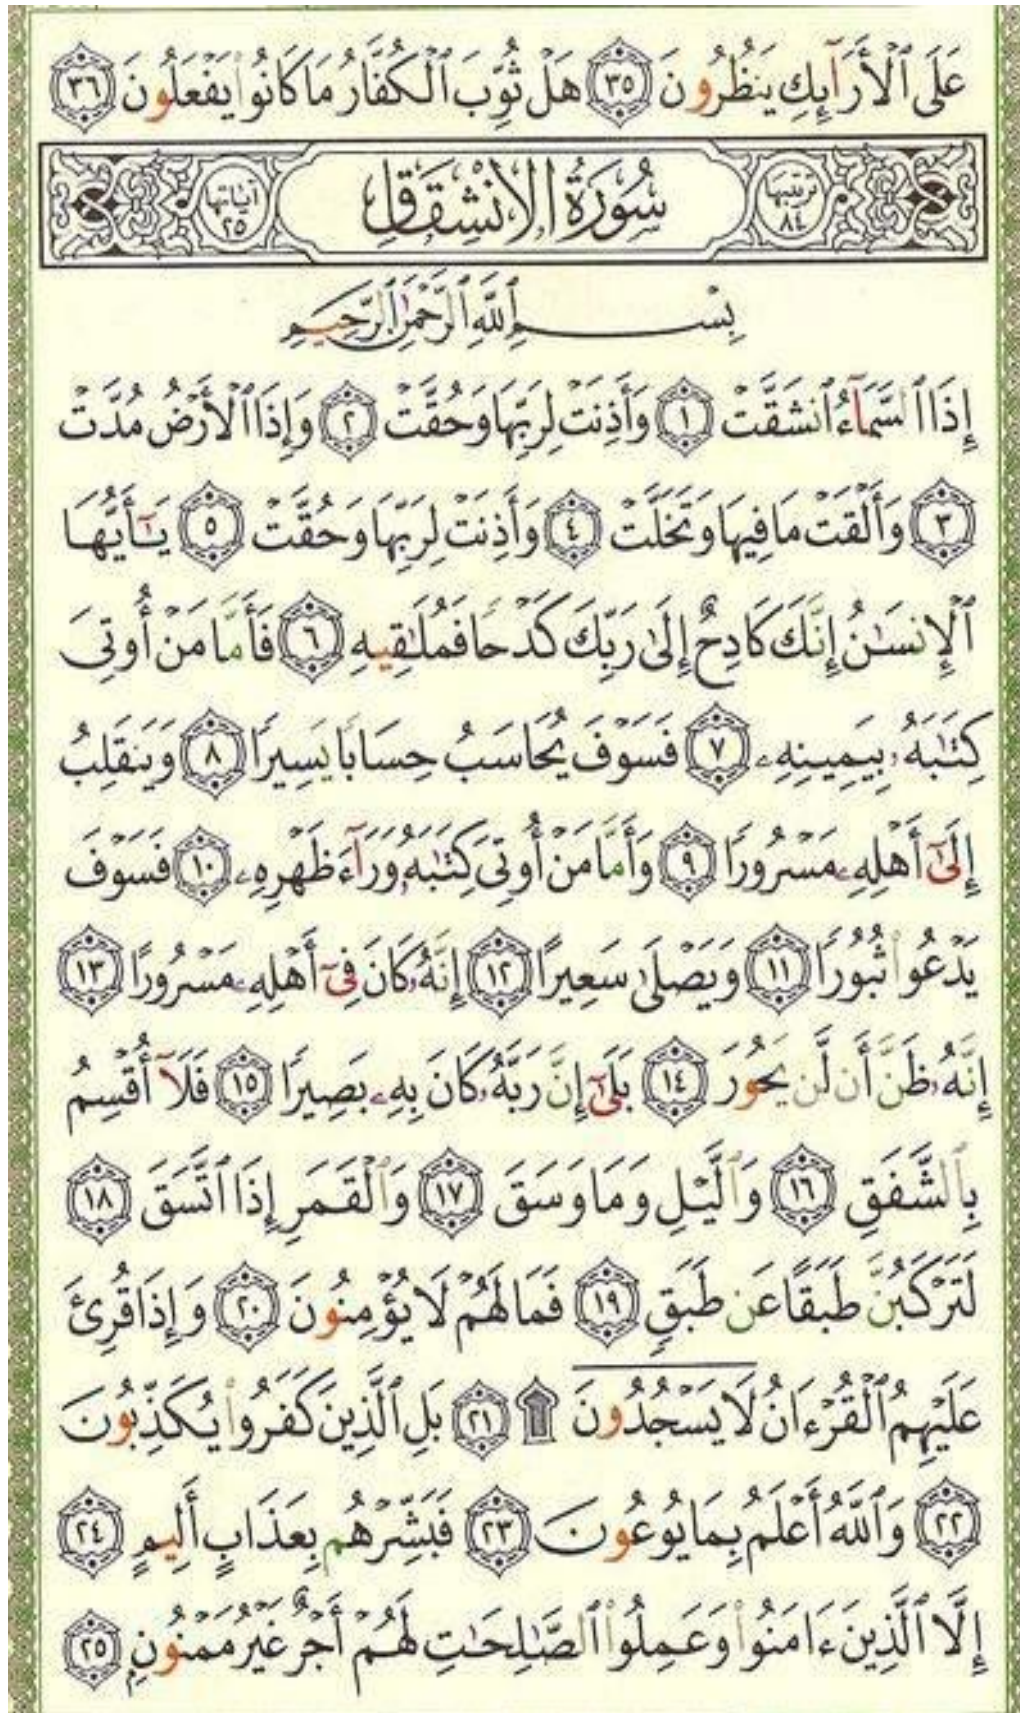 عَلَى ٱلْأَرَآئِكِ يَنظُرُونَ ٣٥ هَلْ ثُوِّبَ ٱلْكُفَّارُ مَا كَانُوا۟ يَفْعَلُونَ ٣٦
ترتيبها ٨٤ سُورَةُ الِانْشِقَاقِ آياتها ٢٥
بِسْمِ ٱللَّهِ ٱلرَّحْمَٰنِ ٱلرَّحِيمِ
إِذَا ٱلسَّمَآءُ ٱنشَقَّتْ ١ وَأَذِنَتْ لِرَبِّهَا وَحُقَّتْ ٢ وَإِذَا ٱلْأَرْضُ مُدَّتْ
٣ وَأَلْقَتْ مَا فِيهَا وَتَخَلَّتْ ٤ وَأَذِنَتْ لِرَبِّهَا وَحُقَّتْ ٥ يَٰٓأَيُّهَا
ٱلْإِنسَٰنُ إِنَّكَ كَادِحٌ إِلَىٰ رَبِّكَ كَدْحًا فَمُلَٰقِيهِ ٦ فَأَمَّا مَنْ أُوتِىَ
كِتَٰبَهُۥ بِيَمِينِهِۦ ٧ فَسَوْفَ يُحَاسَبُ حِسَابًا يَسِيرًا ٨ وَيَنقَلِبُ
إِلَىٰٓ أَهْلِهِۦ مَسْرُورًا ٩ وَأَمَّا مَنْ أُوتِىَ كِتَٰبَهُۥ وَرَآءَ ظَهْرِهِۦ ١٠ فَسَوْفَ
يَدْعُوا۟ ثُبُورًا ١١ وَيَصْلَىٰ سَعِيرًا ١٢ إِنَّهُۥ كَانَ فِىٓ أَهْلِهِۦ مَسْرُورًا ١٣
إِنَّهُۥ ظَنَّ أَن لَّن يَحُورَ ١٤ بَلَىٰٓ إِنَّ رَبَّهُۥ كَانَ بِهِۦ بَصِيرًا ١٥ فَلَآ أُقْسِمُ
بِٱلشَّفَقِ ١٦ وَٱلَّيْلِ وَمَا وَسَقَ ١٧ وَٱلْقَمَرِ إِذَا ٱتَّسَقَ ١٨
لَتَرْكَبُنَّ طَبَقًا عَن طَبَقٍ ١٩ فَمَا لَهُمْ لَا يُؤْمِنُونَ ٢٠ وَإِذَا قُرِئَ
عَلَيْهِمُ ٱلْقُرْءَانُ لَا يَسْجُدُونَ ۩ ٢١ بَلِ ٱلَّذِينَ كَفَرُوا۟ يُكَذِّبُونَ
٢٢ وَٱللَّهُ أَعْلَمُ بِمَا يُوعُونَ ٢٣ فَبَشِّرْهُم بِعَذَابٍ أَلِيمٍ ٢٤
إِلَّا ٱلَّذِينَ ءَامَنُوا۟ وَعَمِلُوا۟ ٱلصَّٰلِحَٰتِ لَهُمْ أَجْرٌ غَيْرُ مَمْنُونٍ ٢٥